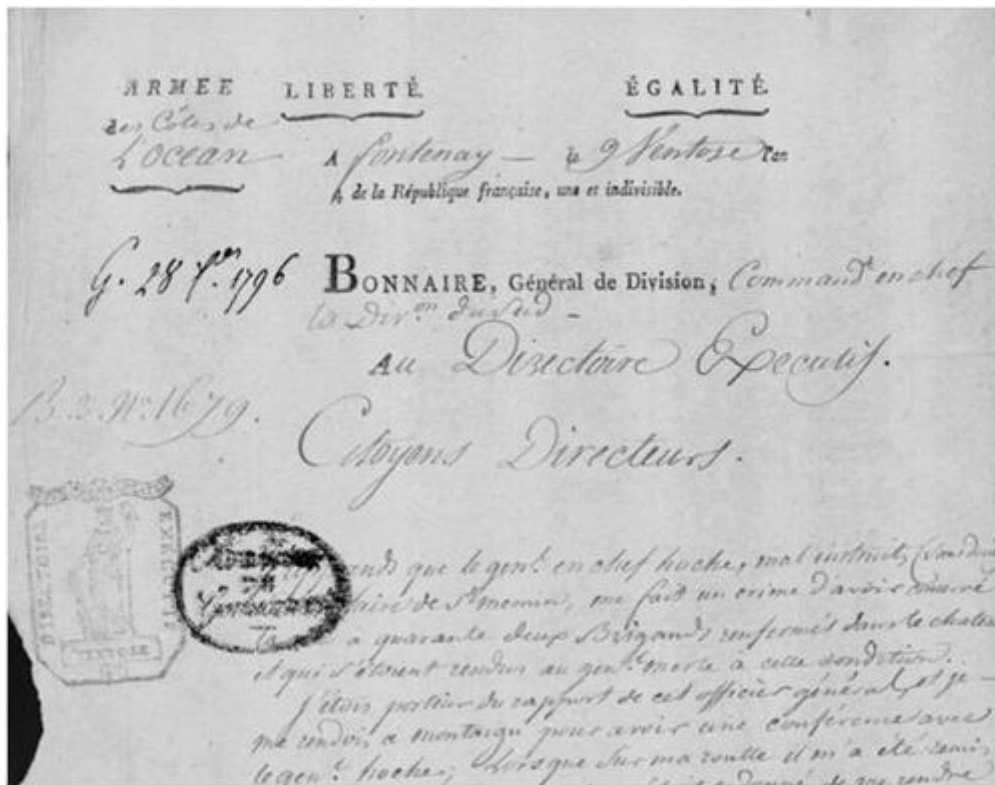 ARMÉE LIBERTÉ ÉGALITÉ
des Côtes de
L'ocean A fontenay — le 9 Ventose l'an
4 de la République française, une et indivisible.
G. 28 f.er 1796
BONNAIRE, Général de Division, Command.t en chef
la Div.on du Sud —
Au Directoire Executif.
B.3. N.o 1679.
Citoyens Directeurs.
DIRECTOIRE
que le gen.l en chef hoche, mal instruit,
de S.t memin, me fait un crime d'avoir
a quarante deux Brigands renfermés dans le chateau
et qui s'étoient rendus au gen.l à cette condition.
J'étois porteur du rapport de cet officier général, et je
me rendois a montaigu pour avoir une conférence avec
le gen.l hoche; Lorsque sur ma routte il m'a été remis
de me rendre